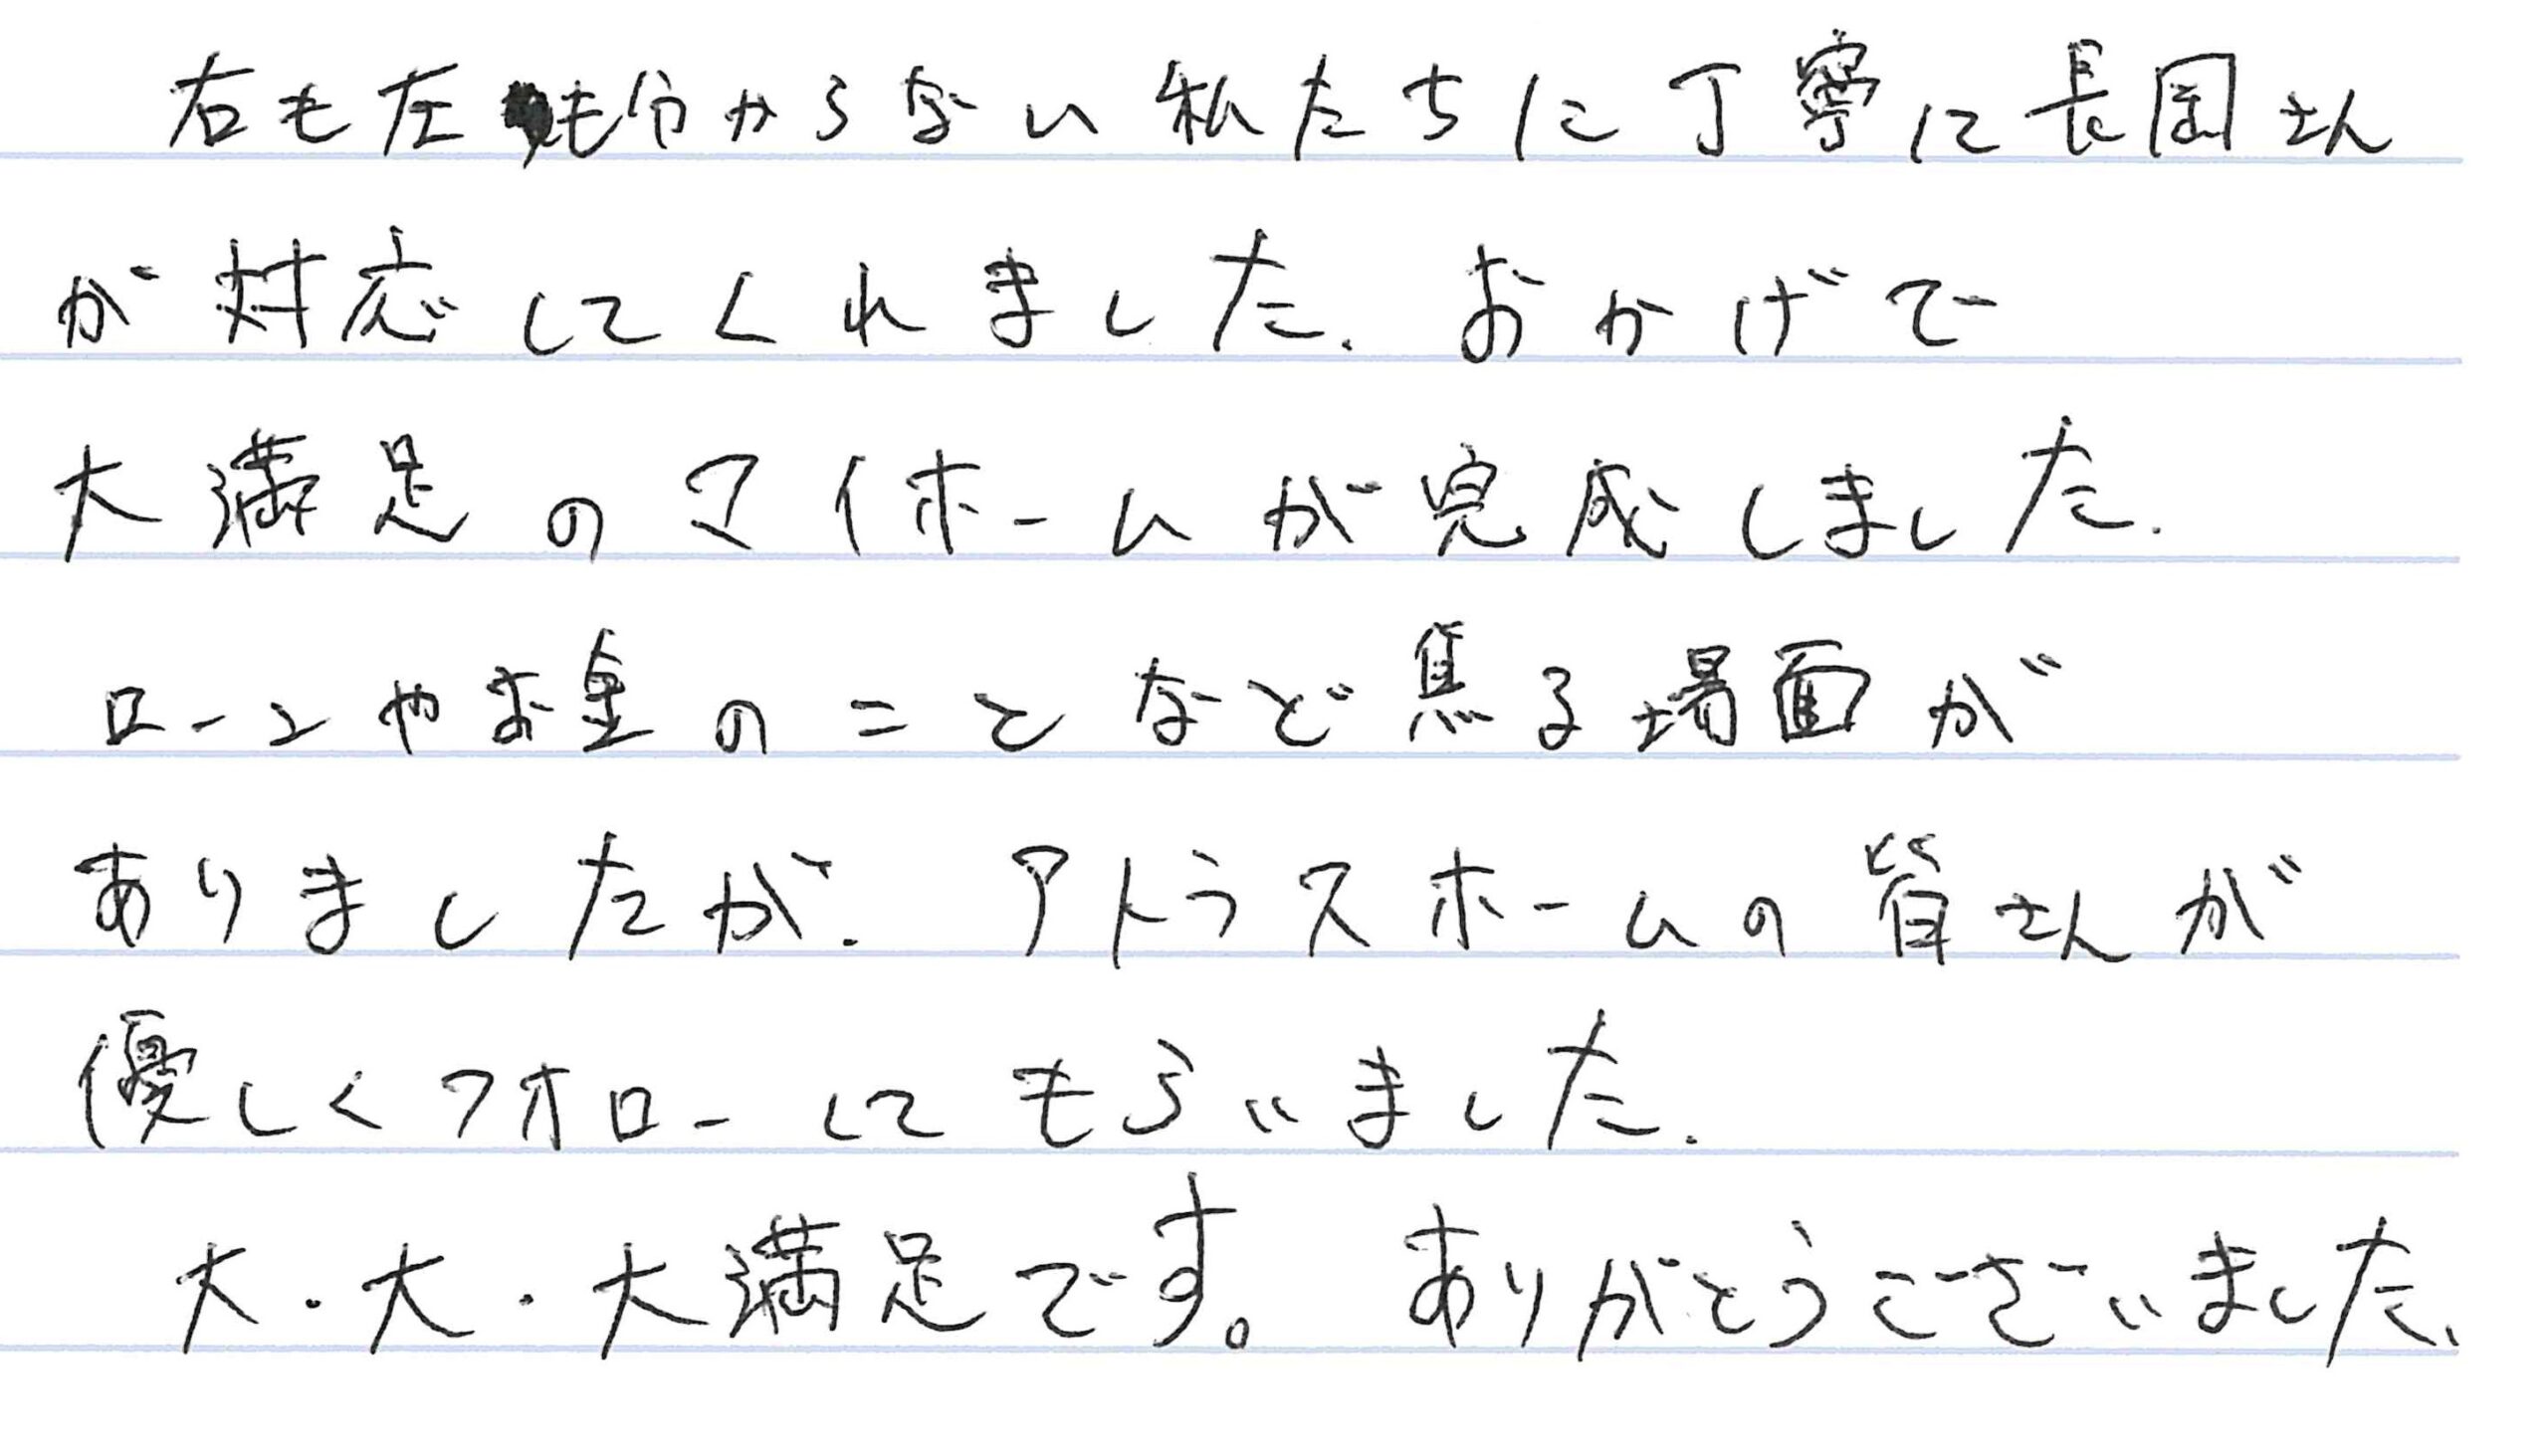 右も左も分からない私たちに丁寧に長岡さん
が対応してくれました。おかげで
大満足のマイホームが完成しました。
ローンやお金のことなど焦る場面が
ありましたが、アトラスホームの皆さんが
優しくフォローしてもらいました。
大・大・大満足です。ありがとうございました。